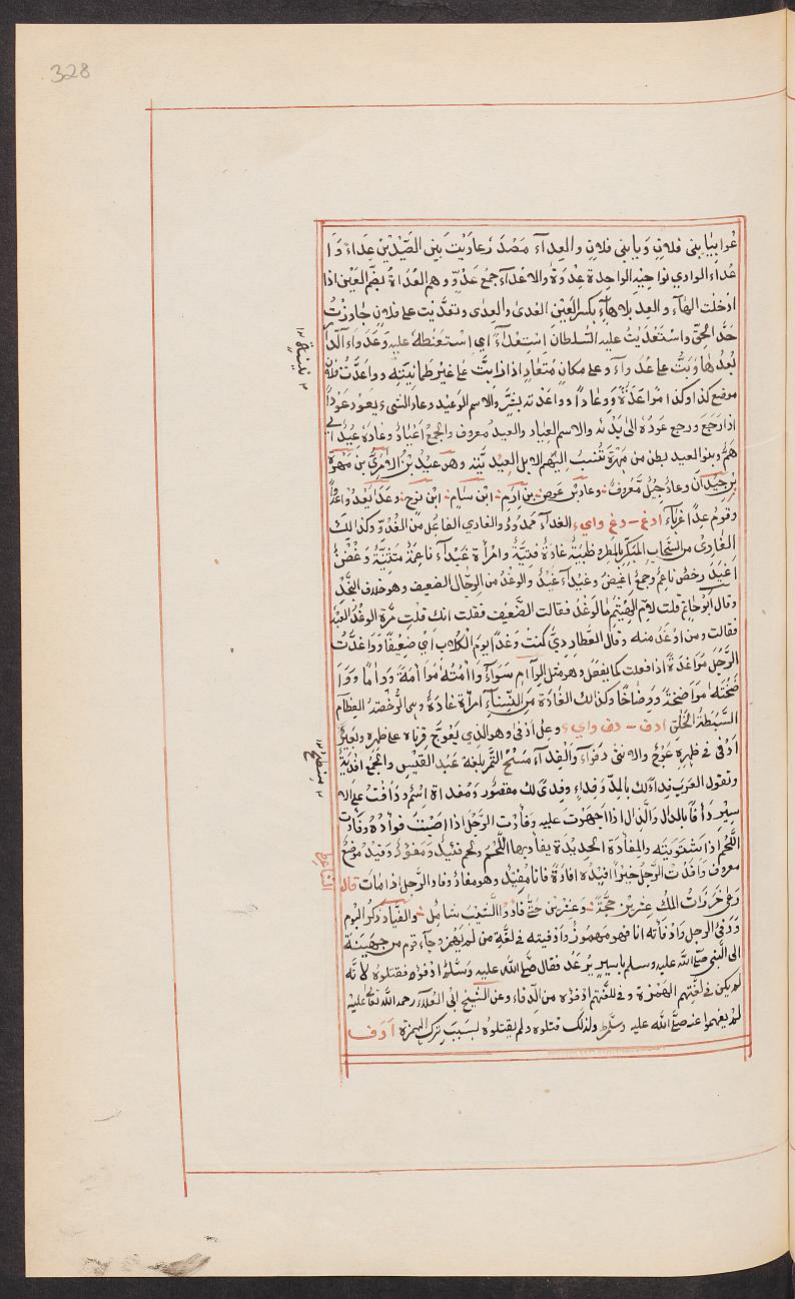 328
عوا بيابنى فلان وَيا بنى فلان والعِدآء مَصْدَر عادَيْتَ بَين الصَّيْدَيْن عِداءً وَا
عْداء الوادي نواحيه الواحدة عِدْوَةٌ والاعدآء جمع عَدُوٍّ وهم العُدَاةُ بضمّ العَيْن اذا
ادخلت الهآء والعِدَ بلا هآءٍ بكسر العَيْنِ العِدىٰ والعِدى وتعدَّيْت على فلان جاوزْتُ
حَدّ الحقّ واسْتَعْدَيْتُ عليه السُّلطان اسْتِعْداءً اي اسْتَعَنْتُهُ عليه وَعُدَوَاء الدّا
بُعْدُها وَبِتُّ على عُدَوآء وعلى مكانٍ مُتَعَادٍ اذا بتَّ على غير طمأنينته وواعَدْتُ فلان
موضع كذا وكذا مُواعَدَةً وَوِعَادًا وواعَدْته بشرّ والاسم الوَعيد وعاد الشىء يعود عَوْدًا
اذا رَجَعَ ورجع عَودُهُ الى بَدْئه والاسم العِيَاد والعيدُ معروف والجمعُ اَعْيَادٌ وعادَهُ عِيدٌ اي
هَمٌّ وبنو العيد بطن من مَهْرَةَ تُنسَبُ اليْهم الابل العِيديَّته وهو عيدُ بْنُ الآمِرِيّ بن مَهْرَة
بْنِ حَيْدَانَ وعادٌ جيلٌ مَعْروفٌ وعاد بْن عَوص بن اِرَم ابْن سَام ابْن نوح وعَدَا يَعْدُ واعَدَّا
وقوم عِدًا غرباء ادغ - دغ واي الغدآء ممدُودٌ والغادي الفاعِل منَ الغُدُوّ وكذالك
الغادِىْ من السَّحَاب المبكّر بالمطر وظبيَةٌ غادَةٌ فَتِيَّةٌ وامْرأة غَيْدآءُ ناعِمةٌ مَتَثَنِّيَةٌ وَغُصْنٌ
اغْيَدُ رخْصٌ ناعِمٌ وجمعُ اغيَدَ وغَيْدآء غِيْدٌ والوَغْدُ من الرّجَال الضعيف وهو خلاف النَّجْد
وقال ابُوْ حَاتِم قلت لأمّ الهيْثم ما الوَغْدُ فقالت الضَّعِيف فقلت انك قلتِ مَرّة الوغدُ العَبْد
فقالت ومن اوْغَدُ منه وقال العُطارِديَّ كنتُ وَغْدًا يومَ الكُلاب اَيْ ضعِيْفًا وَوَاغَدْتُ
الرَّجلَ مُوَاغَدَةً اذا فعلت كما يفعل وهو مثل الوآم سَوَاءً وَاَمْتُهُ مُوَاءَمَةً وَوآمًا وَوَا
ضَخْتَهُ مُوَاضَخَةً وَوِضَاخًا وكذالك الغَادَةُ منَ النّسآء امرأة غادَةٌ وهى الرَّخْصَة العِظَام
السَّبطةُ الخُلُق ادف - دف واي وعِلٌ اَدْفى وهو الذي يَعْوَجُّ قِرناه على ظهره وبعيرٌ
اَدْفى في ظهره عَوَجٌ والانثى دَفْوَآءُ وَالْفَدَآءُ مَسْطَحُ التَّمر بلغة عَبْد القَيْس والجمع افْدِيَةٌ
وتقول العرَب فداءً لك بالمدّ وَفِداءٍ وفِدىً لك مقصُور ومُفدَاة اِسْمٌ وَدَأَفْتُ على الا
سِيْر دَأْفًا بالدّال والذّال اذا اجْهَزتَ عليه وفأدت الرّجُل اذا اصَبْتَ فوادَهُ وفأدت
اللَّحْم اذا شَوَيْتَه والمِفأدَة الحدِيْدَة يفأدبها اللَّحْم ولحم فئيدٌ ومَفْؤدٌ وفَيْد موضع
معروف وافَدْت الرَّجلَ خَيْرًا اُفيدُه افادَةً فانا مُفِيْدٌ وهو مفادٌ وفاد والرَّجل اذا مات قال
الشاعر
رعٰى خَرَزَاتِ الملك عِشرين حجّةً وَعِشْريْن حَتّٰى فَادَوَا الشَّيْبُ شامِل والفَيَّاد ذكر البُوم
وَدَفِئ الرجل وَادْفأته انا فهو مَهمُوزٌ وادْفيته في لغة من لم يَهْمِز وجآء قوم من جهَيْنَة
الى النّبي صلَّ اللَّه عليه وسلم باسير يرعَدُ فقال صلَّ اللَّه عليهِ وسَلَّمَ ادْفوُه فقتلوه لانّه
لم يكن في لغتِهم الهَمْزة وفي لُغَتِهم ادْفوْه من الدّفاء وعن الشّيخ ابى العُلآء رحمه اللَّه تعالى عليْه
لَمْ يفهموا عنه صلَّ اللَّه عليه وسلم ولذٰلك قتلوه ولم يقتلوه بسَبَب ترك الهمزة ادف